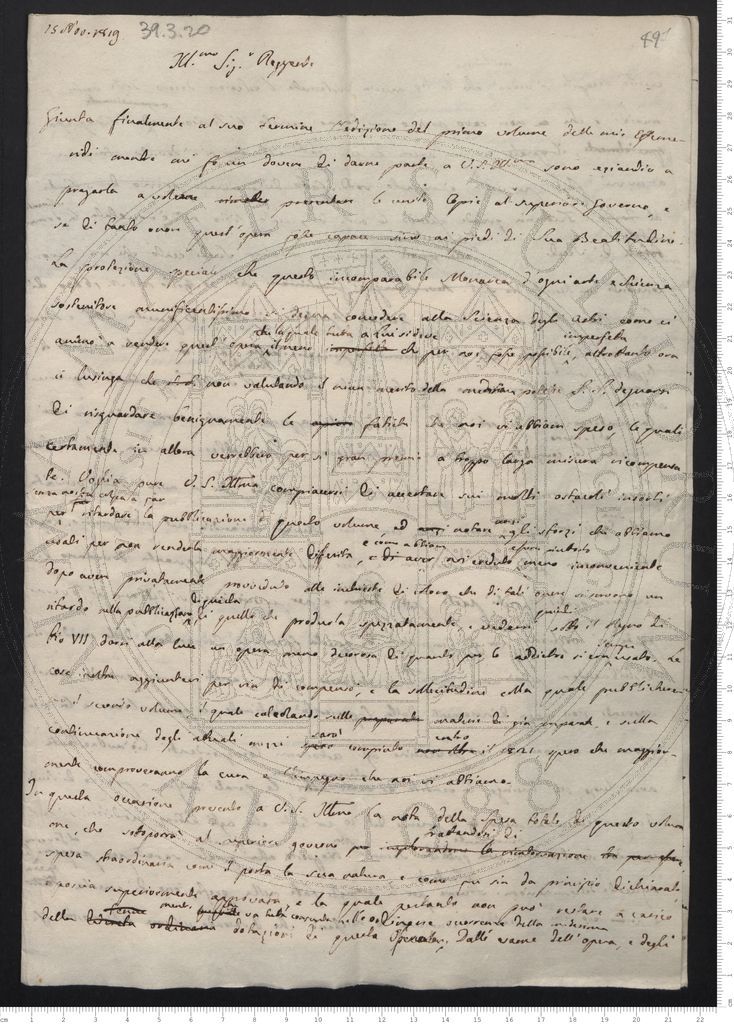 15 Nov. 1819 39.3.20 89
Ill.mo Sig.r Reggente
Giunta finalmente al suo termine l'edizione del primo volume delle mie Effeme-
ridi mentre mi fo un dovere di darne parte a V.S. Ill.ma sono eziandio a
pregarla a volerne presentare le unite Copie al superiore Governo, e
se di tanto onore quest'opera fosse capace sino ai piedi di Sua Beatitudine.
La protezione speciale che questo incomparabile Monarca d'ogni arte e scienza
sostenitore munificentissimo si degna concedere alla Scienza degli Astri come ci
animò a rendere quest'opera il meno imperfetta che per noi fosse possibile, altrettanto ora
ci lusinga che non valutando il niun merito della medesima potesse S.S. degnarsi
di risguardare benignamente le fatiche che noi vi abbiam speso, le quali
certamente in allora verrebbero per sì gran premio a troppo larga misura ricompensa
te. Voglia pure V.S. Ill.ma compiacersi di accertare sui molti ostacoli insorti
senza nostra colpa a far
ritardare la pubblicazione di questo volume, ed anzi notare gli sforzi che abbiamo
usati per non renderla maggiormente differita, e di aver noi creduto meno inconveniente
e come abbiam
dopo aver privatamente provveduto alle inchieste di coloro che di tali opere si servono un
ritardo nella pubblicazione di quello che produrla spezzatamente, e vedersi sotto il Regno di
Pio VII darsi alla luce un'opera meno decorosa di quanto per lo addietro si Le
cose inoltre aggiuntevi per via di compensi, e la sollecitudine colla quale pubblichere-
il secondo volume, il quale calcolando sulle preparate materie di già preparate e sulla
continuazione degli attuali mezzi sarà compiuto entro il 1821 spero che maggior-
mente comproveranno la cura e l'impegno che noi vi abbiamo.
In questa occasione presento a V.S. Ill.ma la nota della spesa totale di questo volum
che sottoporrà al superiore governo trattandosi di
spesa straordinaria come il porta la sua natura e come fin da principio dichiarata
e poscia superiormente approvata, e la quale pertanto non può restare a carico
della ordinaria dotazione di questa Specola. Dall'esame dell'opera, e degli